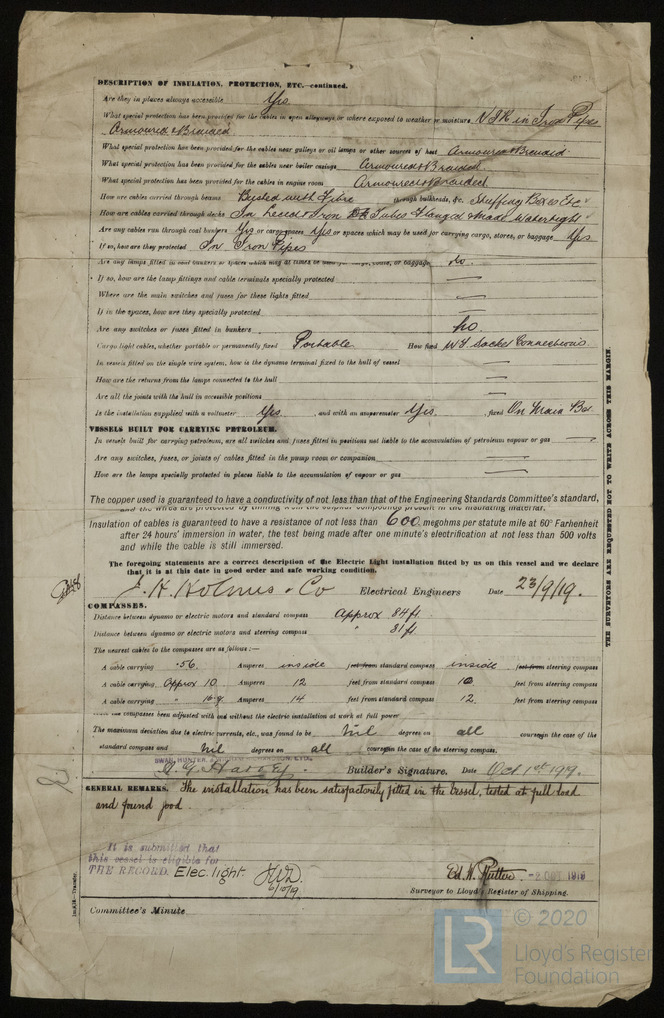 DESCRIPTION OF INSULATION, PROTECTION, ETC.—continued.
Are they in places always accessible Yes
What special protection has been provided for the cables in open alleyways or where exposed to weather or moisture in Iron Pipes
Armoured & Braided
What special protection has been provided for the cables near galleys or oil lamps or other sources of heat Armoured & Braided
What special protection has been provided for the cables near boiler casings Armoured & Braided.
What special protection has been provided for the cables in engine room Armoured & Braided
How are cables carried through beams Bushed with Fibre through bulkheads, &c. Stuffing Boxes Etc
How are cables carried through decks In Lead & Iron Tubes Flanged & made Watertight
Are any cables run through coal bunkers Yes or cargo spaces Yes or spaces which may be used for carrying cargo, stores, or baggage Yes
If so, how are they protected In Iron Pipes
Are any lamps fitted in coal bunkers or spaces which may at times be used for cargo, coals, or baggage No.
If so, how are the lamp fittings and cable terminals specially protected —
Where are the main switches and fuses for these lights fitted —
If in the spaces, how are they specially protected —
Are any switches or fuses fitted in bunkers No.
Cargo light cables, whether portable or permanently fixed Portable. How fixed W T Socket Connections
In vessels fitted on the single wire system, how is the dynamo terminal fixed to the hull of vessel —
How are the returns from the lamps connected to the hull —
Are all the joints with the hull in accessible positions —
Is the installation supplied with a voltmeter Yes. , and with an amperemeter Yes. , fixed On Main Bd
VESSELS BUILT FOR CARRYING PETROLEUM.
In vessels built for carrying petroleum, are all switches and fuses fitted in positions not liable to the accumulation of petroleum vapour or gas —
Are any switches, fuses, or joints of cables fitted in the pump room or companion —
How are the lamps specially protected in places liable to the accumulation of vapour or gas —
The copper used is guaranteed to have a conductivity of not less than that of the Engineering Standards Committee's standard,
and the wires are protected by tinning from the sulphur compounds present in the insulating material.
Insulation of cables is guaranteed to have a resistance of not less than 600 megohms per statute mile at 60° Farhenheit
after 24 hours' immersion in water, the test being made after one minute's electrification at not less than 500 volts
and while the cable is still immersed.
The foregoing statements are a correct description of the Electric Light installation fitted by us on this vessel and we declare
that it is at this date in good order and safe working condition.
J. H. Holmes & Co Electrical Engineers Date 23/9/19.
COMPASSES.
Distance between dynamo or electric motors and standard compass Approx 84 ft.
Distance between dynamo or electric motors and steering compass " 81 ft
The nearest cables to the compasses are as follows:—
A cable carrying .56. Amperes inside feet from standard compass inside feet from steering compass
A cable carrying Approx 10 Amperes 12 feet from standard compass 10 feet from steering compass
A cable carrying " 16.9 Amperes 14 feet from standard compass 12 feet from steering compass
Have the compasses been adjusted with and without the electric installation at work at full power
The maximum deviation due to electric currents, etc., was found to be Nil degrees on all courses in the case of the
standard compass and Nil degrees on all courses in the case of the steering compass.
SWAN, HUNTER, & WIGHAM RICHARDSON, LTD.
Builder's Signature. Date Oct 1st 1919.
GENERAL REMARKS. The installation has been satisfactorily fitted in the vessel, tested at full load
and found good.
It is submitted that
this vessel is eligible for
THE RECORD. Elec. light.
Surveyor to Lloyd's Register of Shipping.
Committee's Minute
THE SURVEYORS ARE REQUESTED NOT TO WRITE ACROSS THIS MARGIN
© 2020
LR
Lloyd's Register
Foundation